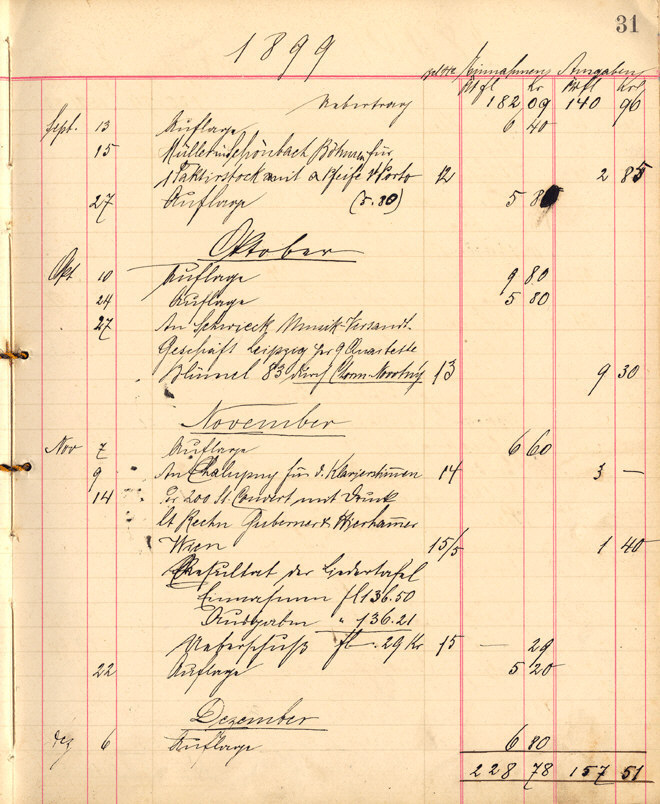 31
1899
Einnahmen Ausgaben
fl Kr fl Kr
Uebertrag 182 09 140 96
Sept. 13 Auflage 6 40
15 Müller in Schönbach Böhmen für
1 Taktirstock mit a Pfeife & Porto 12 2 85
27 Auflage (5.80) 5 80
Oktober
Okt 10 Auflage 9 80
24 Auflage 5 80
27 An Musik-Versandt.
Geschäft Leipzig per 9 Quartette
Blümel 83 durch 13 9 30
November
Nov 7 Auflage 6 60
9 An Chalupny für d. Klavierstimmen 14 3 —
14 Per 200 St. Couvert mit Druck
lt Rechn &
Wien 15/5 1 40
Resultat der Liedertafel
Einnahmen fl 136.50
Ausgaben " 136.21
Ueberschuß fl -.29 Kr 15 — 29
22 Auflage 5 20
Dezember
Dez 6 Auflage 6 80
228 78 157 51